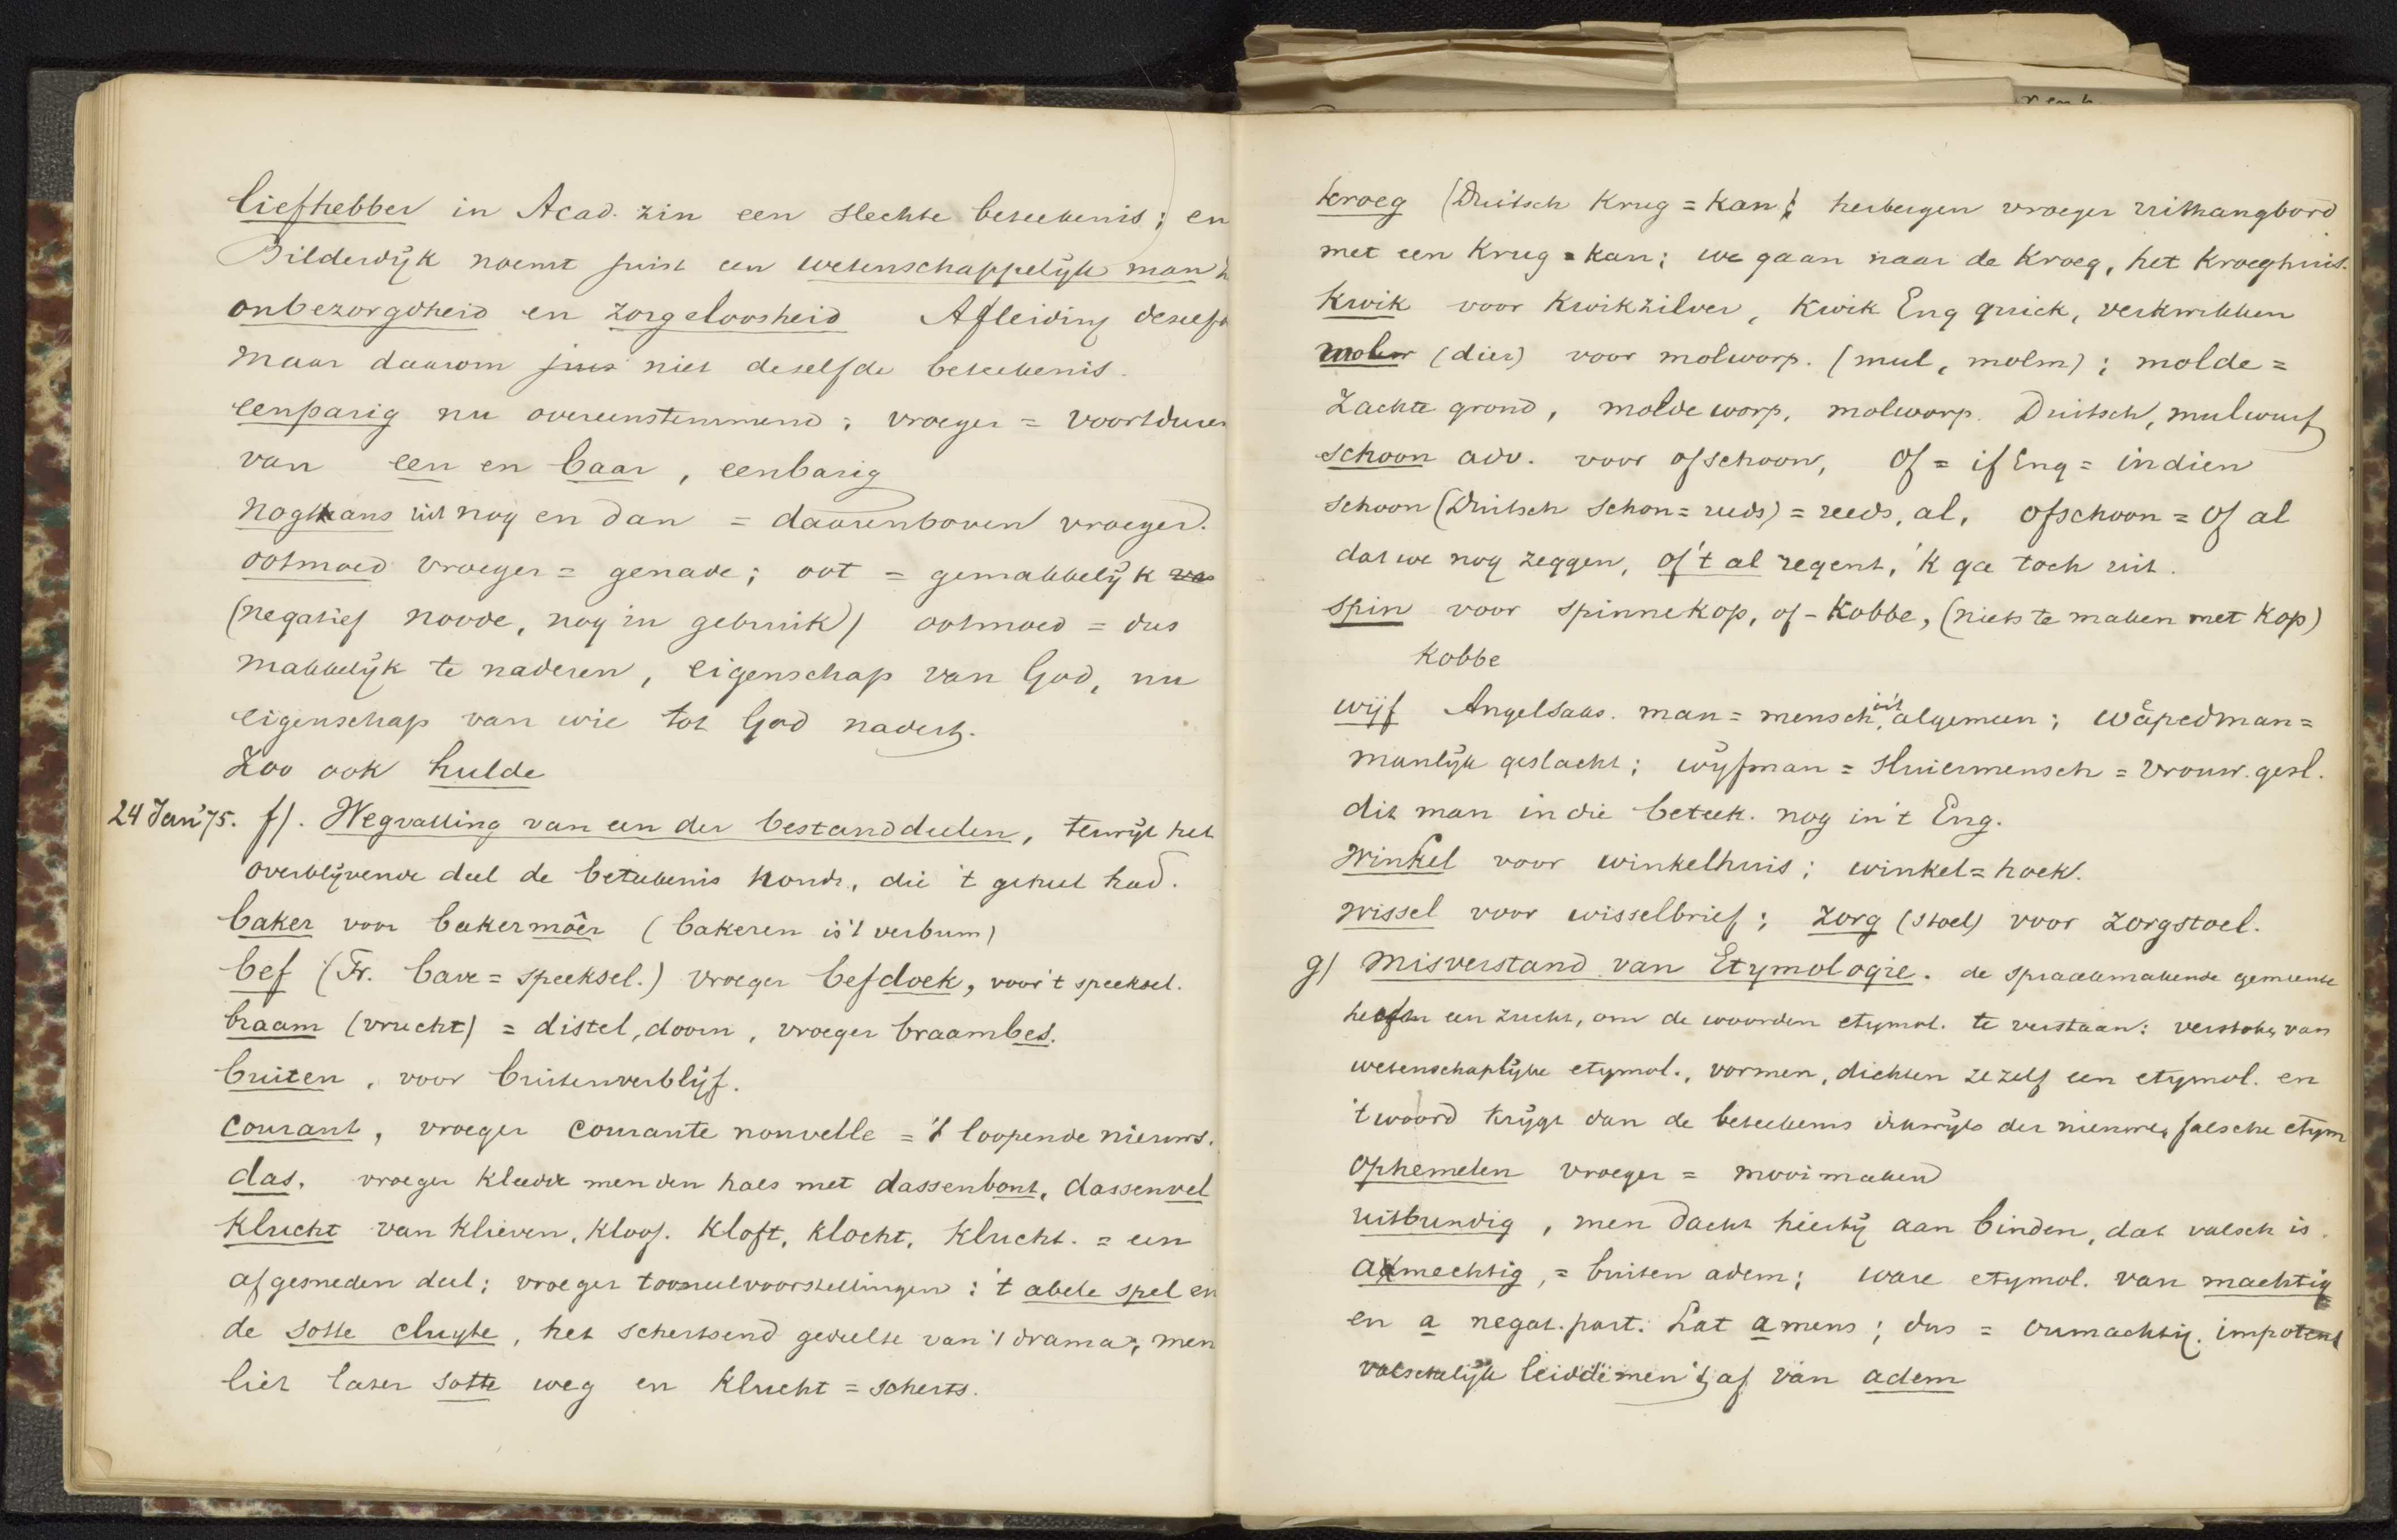 liefhebber in Acad. zin een slechte beteekenis; en
Bilderdijk noemt juist een wetenschappelijk man
onbezorgdheid en zorgeloosheid Afleiding deselfd
maar daarom juis niet deselfde beteekenis.
eenparig nu overeenstemmend; vroeger = voortduren
van een en baar, eenbarig
nogthans uit nog en dan = daarenboven vroeger.
ootmoed vroeger = genade; oot = gemakkelijk va
(negatief noode, nog in gebruik) ootmoed = dus
makkelijk te naderen, eigenschap van God, nu
eigenschap van wie tot God nadert.
Zoo ook hulde
24 Jan '75. f). Wegvalling van een der bestanddeelen, terwijl het
overblijvende deel de beteekenis houdt, die 't geheel had.
baker voor bakermoêr (bakeren is 't verbum)
bef (Fr. bave = speeksel.) vroeger befdoek, voor 't speeksel.
braam (vrucht) = distel, doorn, vroeger braambes.
buiten, voor buitenverblijf.
courant, vroeger courante nouvelle = 't loopende nieuws.
das, vroeger kleedde men den hals met dassenbont, dassenvel
klucht van klieven, kloof. kloft, klocht, klucht. = een
afgesneden deel; vroeger tooneelvoorstellingen: 't abele spel en
de sotte cluyte, het schertsend gedeelte van 't drama; men
liet later sotte weg en klucht = scherts.
kroeg (Duitsch Krug = kan; herbergen vroeger uithangbord
met een Krug = kan; we gaan naar de kroeg, het kroeghuis.
kwik voor kwikzilver, kwik Eng quick, verkwikken
mol (dier) voor molworp. (mul, molm); molde =
zachte grond, moldeworp, molworp. Duitsch, mulwurf
schoon adv. voor ofschoon, of = if Eng = indien
schoon (Duitsch schon = reeds) = reeds, al, ofschoon = of al
dat we nog zeggen, of 't al regent, 'k ga toch uit.
spin voor spinnekop, of - kobbe, (niets te maken met kop)
kobbe
wijf Angelsaks. man = mensch, in 't algemeen; wâpedman =
manlijk geslacht; wijfman = sluiermensch = vrouw. gesl.
dit man in die beteek. nog in 't Eng.
Winkel voor winkelhuis; winkel = hoek.
Wissel voor wisselbrief; zorg (stoel) voor zorgstoel.
g) Misverstand van Etymologie. de spraakmakende gemeente
heeft een zucht, om de woorden etymol. te verstaan: verstoken van
wetenschaplijke etymol., vormen, dichten ze zelf een etymol. en
't woord krijgt dan de beteekenis der nieuwe, falsche etym
ophemelen vroeger = mooimaken
uitbundig, men dacht hierbij aan binden, dat valsch is.
amechtig, = buiten adem; ware etymol. van machtig
en a negat. part. Lat amens; dus = onmachtig. impotent
valschelijk leidde men 't af van adem